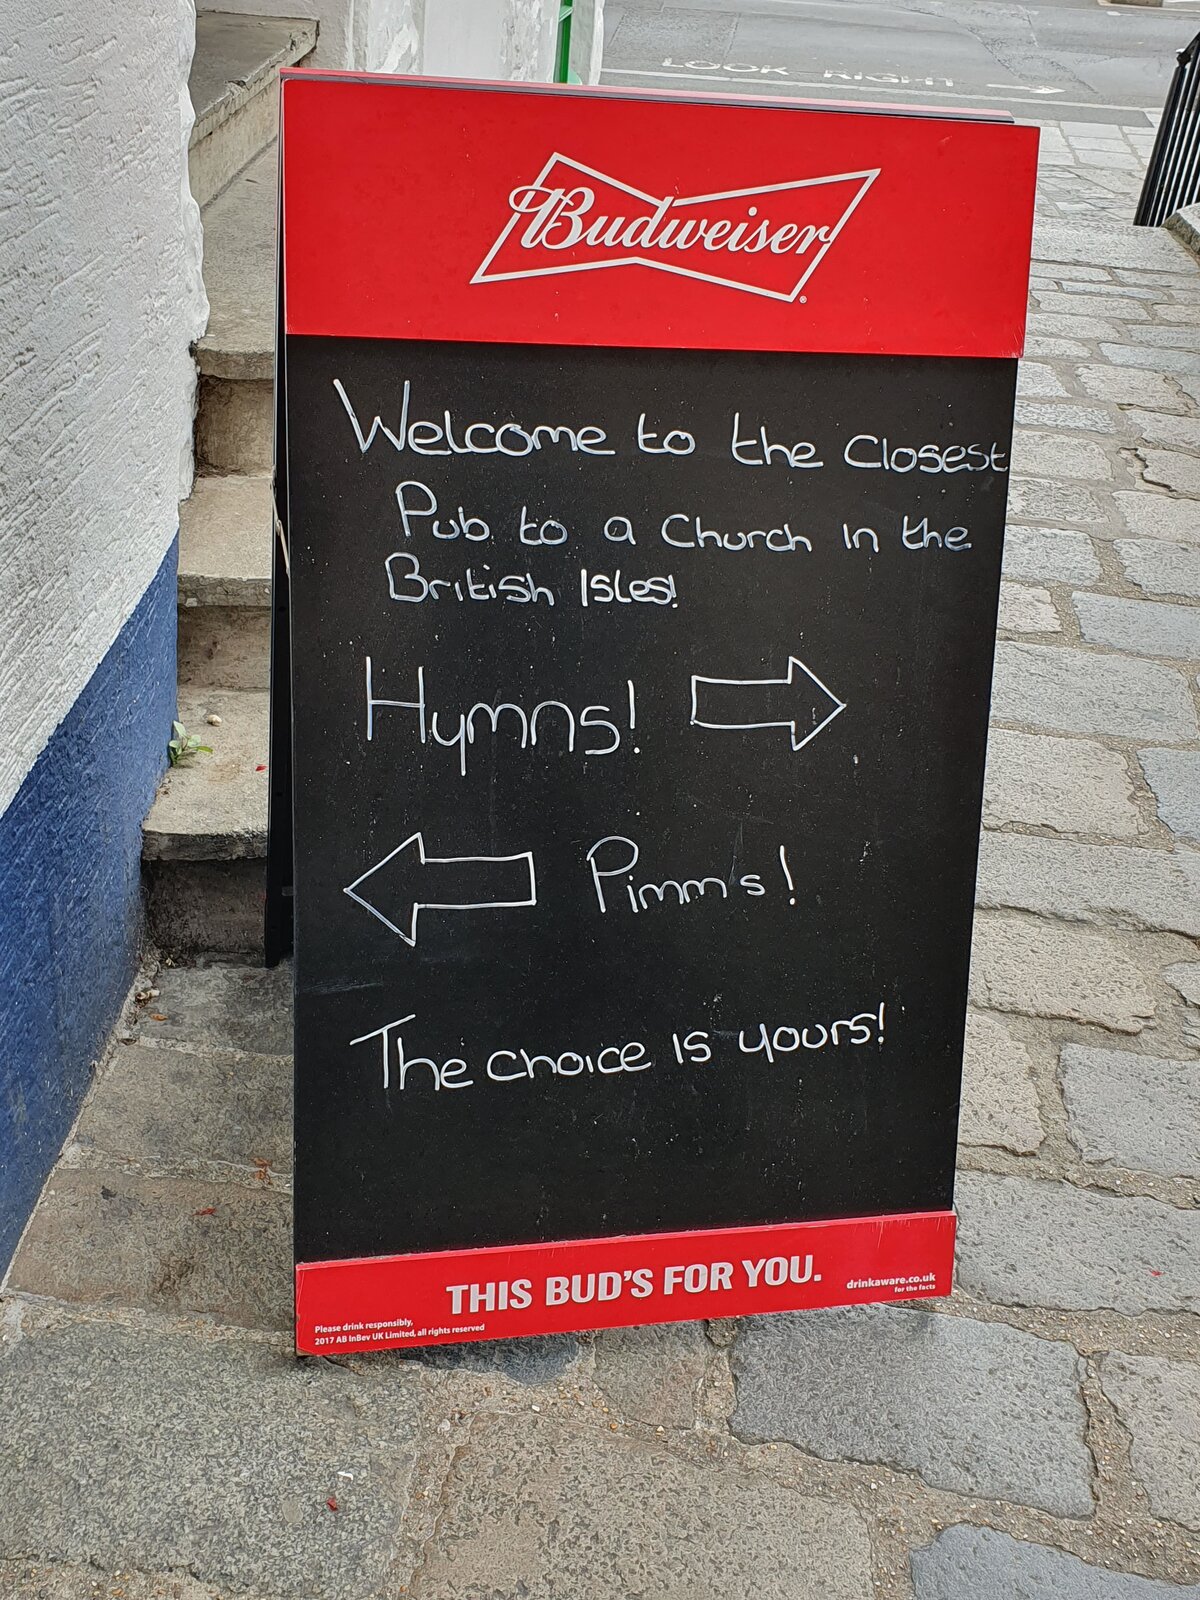 LOOK RIGHT
Budweiser
Welcome to the Closest
Pub to a Church in the
British Isles!
Hymns!
Pimm's!
The choice is yours!
THIS BUD'S FOR YOU.
drinkaware.co.uk
for the facts
Please drink responsibly,
2017 AB InBev UK Limited, all rights reserved